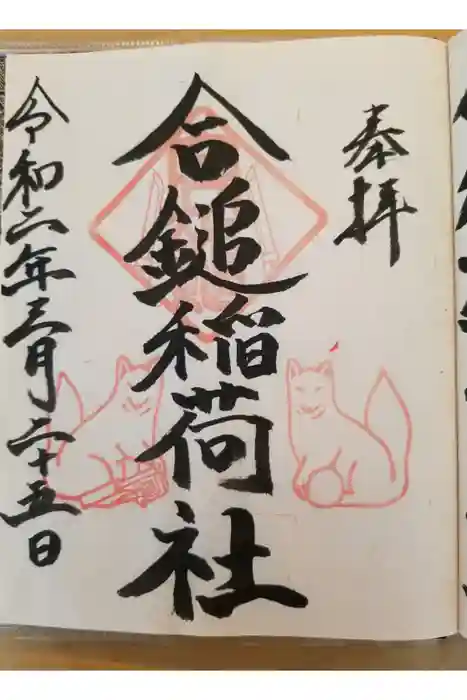 奉拝
合鎚稲荷社
令和二年三月二十五日